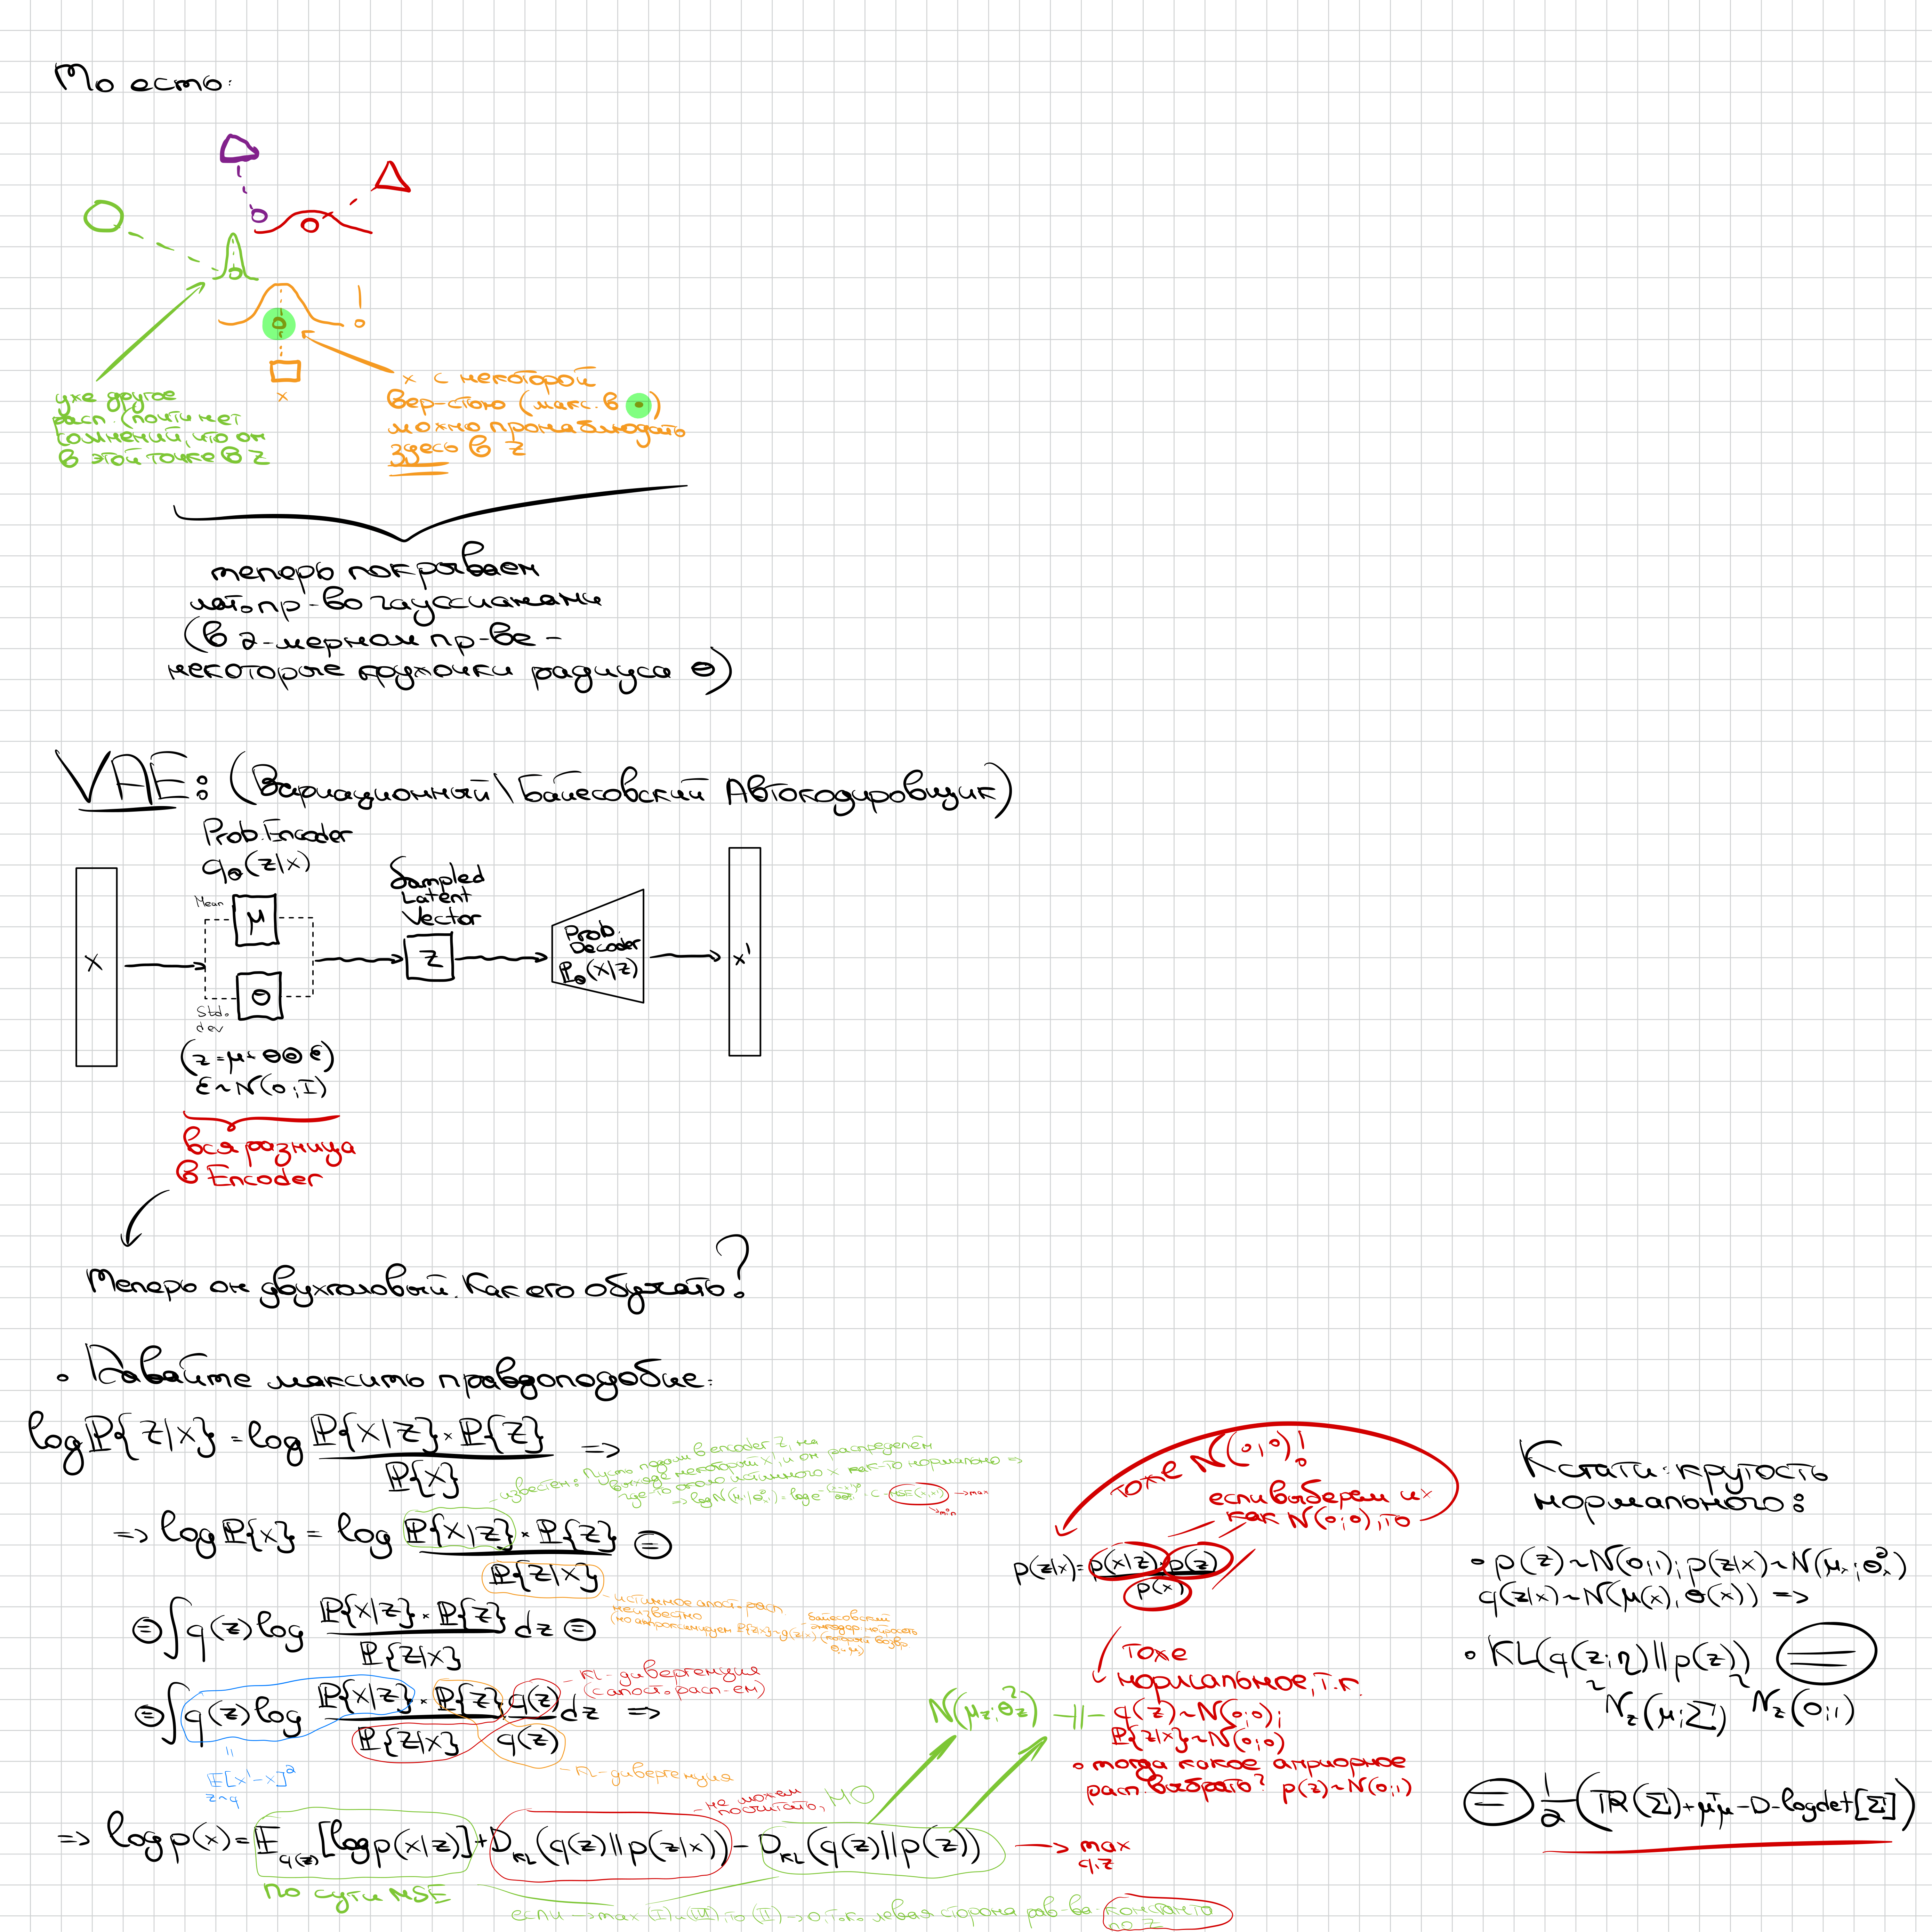 То есть:
x
уже другое
расп. (почти нет
сомнений, что он
в этой точке в Z
x с некоторой
вер-стью (макс. в •)
можно пронаблюдать
здесь в Z
теперь покрываем
лат. пр-во гауссианами
(в 2-мерном пр-ве -
некоторые кружочки радиуса σ)
VAE: (Вариационный\Байесовский Автокодировщик)
Prob. Encoder
qθ(z|x)
Mean
μ
Std.
dev
σ
x
Sampled
Latent
Vector
z
Prob.
Decoder
ℙθ(x|z)
x'
(z = μ + σ⊙ε)
ε~N(0;I)
вся разница
в Encoder
Теперь он двухголовый. Как его обучать?
• Давайте максить правдоподобие:
log ℙ{z|x} = log ℙ{x|z} × ℙ{z} / ℙ{x} =>
- известен: пусть подали в encoder z, на
выходе некоторый x', и он распределён
где-то около истинного x как-то нормально =>
-> max
-> min
=> log ℙ{x} = log ℙ{x|z} × ℙ{z} / ℙ{z|x} =
- истинное апост. расп
неизвестно
- байесовский
= ∫ q(z) log ℙ{x|z} × ℙ{z} / ℙ{z|x} dz =
- KL-дивергенция
(с апост. расп-ем)
= ∫ q(z) log ℙ{x|z} × ℙ{z} q(z) / ℙ{z|x} q(z) dz =>
𝔼[x'-x]²
z~q
- KL-дивергенция
- не можем
посчитать, НО
=> log p(x) = 𝔼q(z)[log p(x|z)] + D_KL(q(z)||p(z|x)) - D_KL(q(z)||p(z)) -> max
q,z
по сути MSE
если -> max (I) и (III), то (II) -> 0, т.к. левая сторона рав-ва константа
по z
тоже N(0;0)!
если выберем их
как N(0;0), то
p(z|x) = p(x|z) p(z) / p(x)
тоже
нормальное, т.к.
N(μz;σz²) -||- q(z)~N(0;0);
ℙ{z|x}~N(0;0)
• тогда какое априорное
расп. выбрать? p(z)~N(0;1)
Кстати: крутость
нормального:
• p(z)~N(0;1); p(z|x)~N(μx;σx²)
q(z|x)~N(μ(x),σ(x)) =>
• KL(q(z;η)||p(z)) =
Nz(μ;Σ) Nz(0;1)
= 1/2 (TR(Σ) + μᵀμ - D - logdet[Σ])